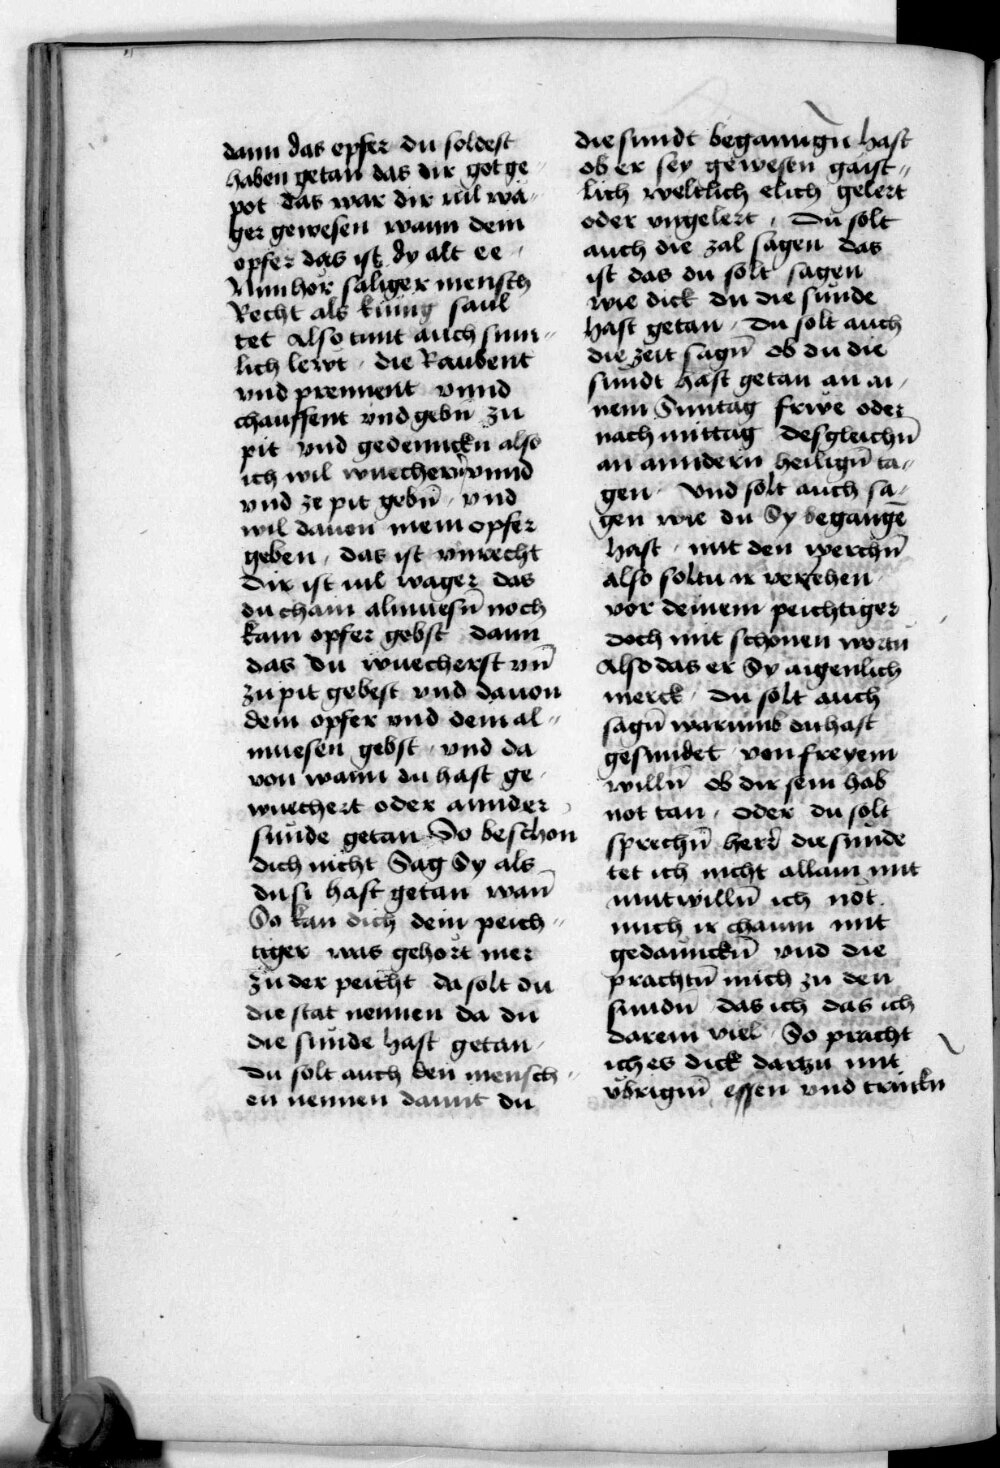 dann das opfer du soldest
haben getan das dir got ge„
pot das war dir vil wa„
ger gewesen wann dein
opfer das ist dy alt ee
Nun hör saliger mensch
Recht als künig saul
tet Also tunt auch sum„
lich lewt · die Raubent
vnd prennent vnnd
chauffent vnd gebn̄ zu
pit vnd gedennckn̄ also
ich wil wuechern vnnd
vnd ze pit gebn̄ · vnd
wil dauon mein opfer
geben · das ist vnrecht
Dir ist vil wager das
du chain almuesn̄ noch
kain opfer gebst dann
das du wuecherst vn̄
zu pit gebest vnd dauon
dem opfer vnd dem al„
muesen gebst · vnd da
von wann du hast ge„
wuechert oder annder
sünde getan So beschon
dich nicht Sag Sy als
du si hast getan wan̄
So kan dich dein peich„
tiger was gehort mer
zu der peicht da solt du
die stat nennen da du
die sünde hast getan ·
Du solt auch den mensch„
en nennen damit du
die sundt beganngn̄ hast
ob er sey gewesn̄ gaist„
lich weltlich elich gelert
oder vngelert · Du solt
auch die zal sagen das
ist das du solt sagen
wie dick du die sünde
hast getan · Du solt auch
die zeit sagn̄ ob du die
sundt hast getan an ai„
nem Suntag frwe oder
nach mittag desgleichn̄
an anndern heilign̄ ta„
gen · Vnd solt auch sa„
gen wie du Sy begangē
hast · mit den werchn̄
also soltu ir veriehen
vor deinem peichtiger
doch mit schonen wortn̄
Also das er Sy aigenlich
merck · Du solt auch
sagn̄ warumb du hast
gesundet von freyem
willn̄ ob dir sein hab
not tan · oder du solt
sprechn̄ herr die sünde
tet ich nicht allain mit
mutwilln̄ ich nöt
mich ir chaum mit
gedannckn̄ vnd die
prachtn̄ mich zu den
sundn̄ das ich das ich
darein viel · So pracht
ich es dick darzu mit
vbrigm̄ essen vnd trinckn̄